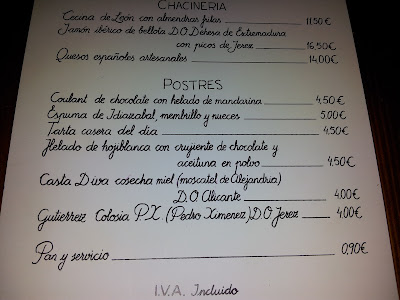 CHACINERIA
Cecina de León con almendras fritas 11,50€
Jamón ibérico de bellota D.O. Dehesa de Extremadura
con picos de Jerez 16,50€
Quesos españoles artesanales 14,00€
POSTRES
Coulant de chocolate con helado de mandarina 4,50€
Espuma de Idiazabal, membrillo y nueces 5,00€
Tarta casera del día 4,50€
Helado de hojiblanca con crujiente de chocolate y
aceituna en polvo 4,50€
Casta Diva cosecha miel (moscatel de Alejandría)
D.O Alicante 4,00€
Gutierrez Colosia P.X. (Pedro Ximenez) D.O Jerez 4,00€
Pan y servicio 0,90€
I.V.A. Incluido